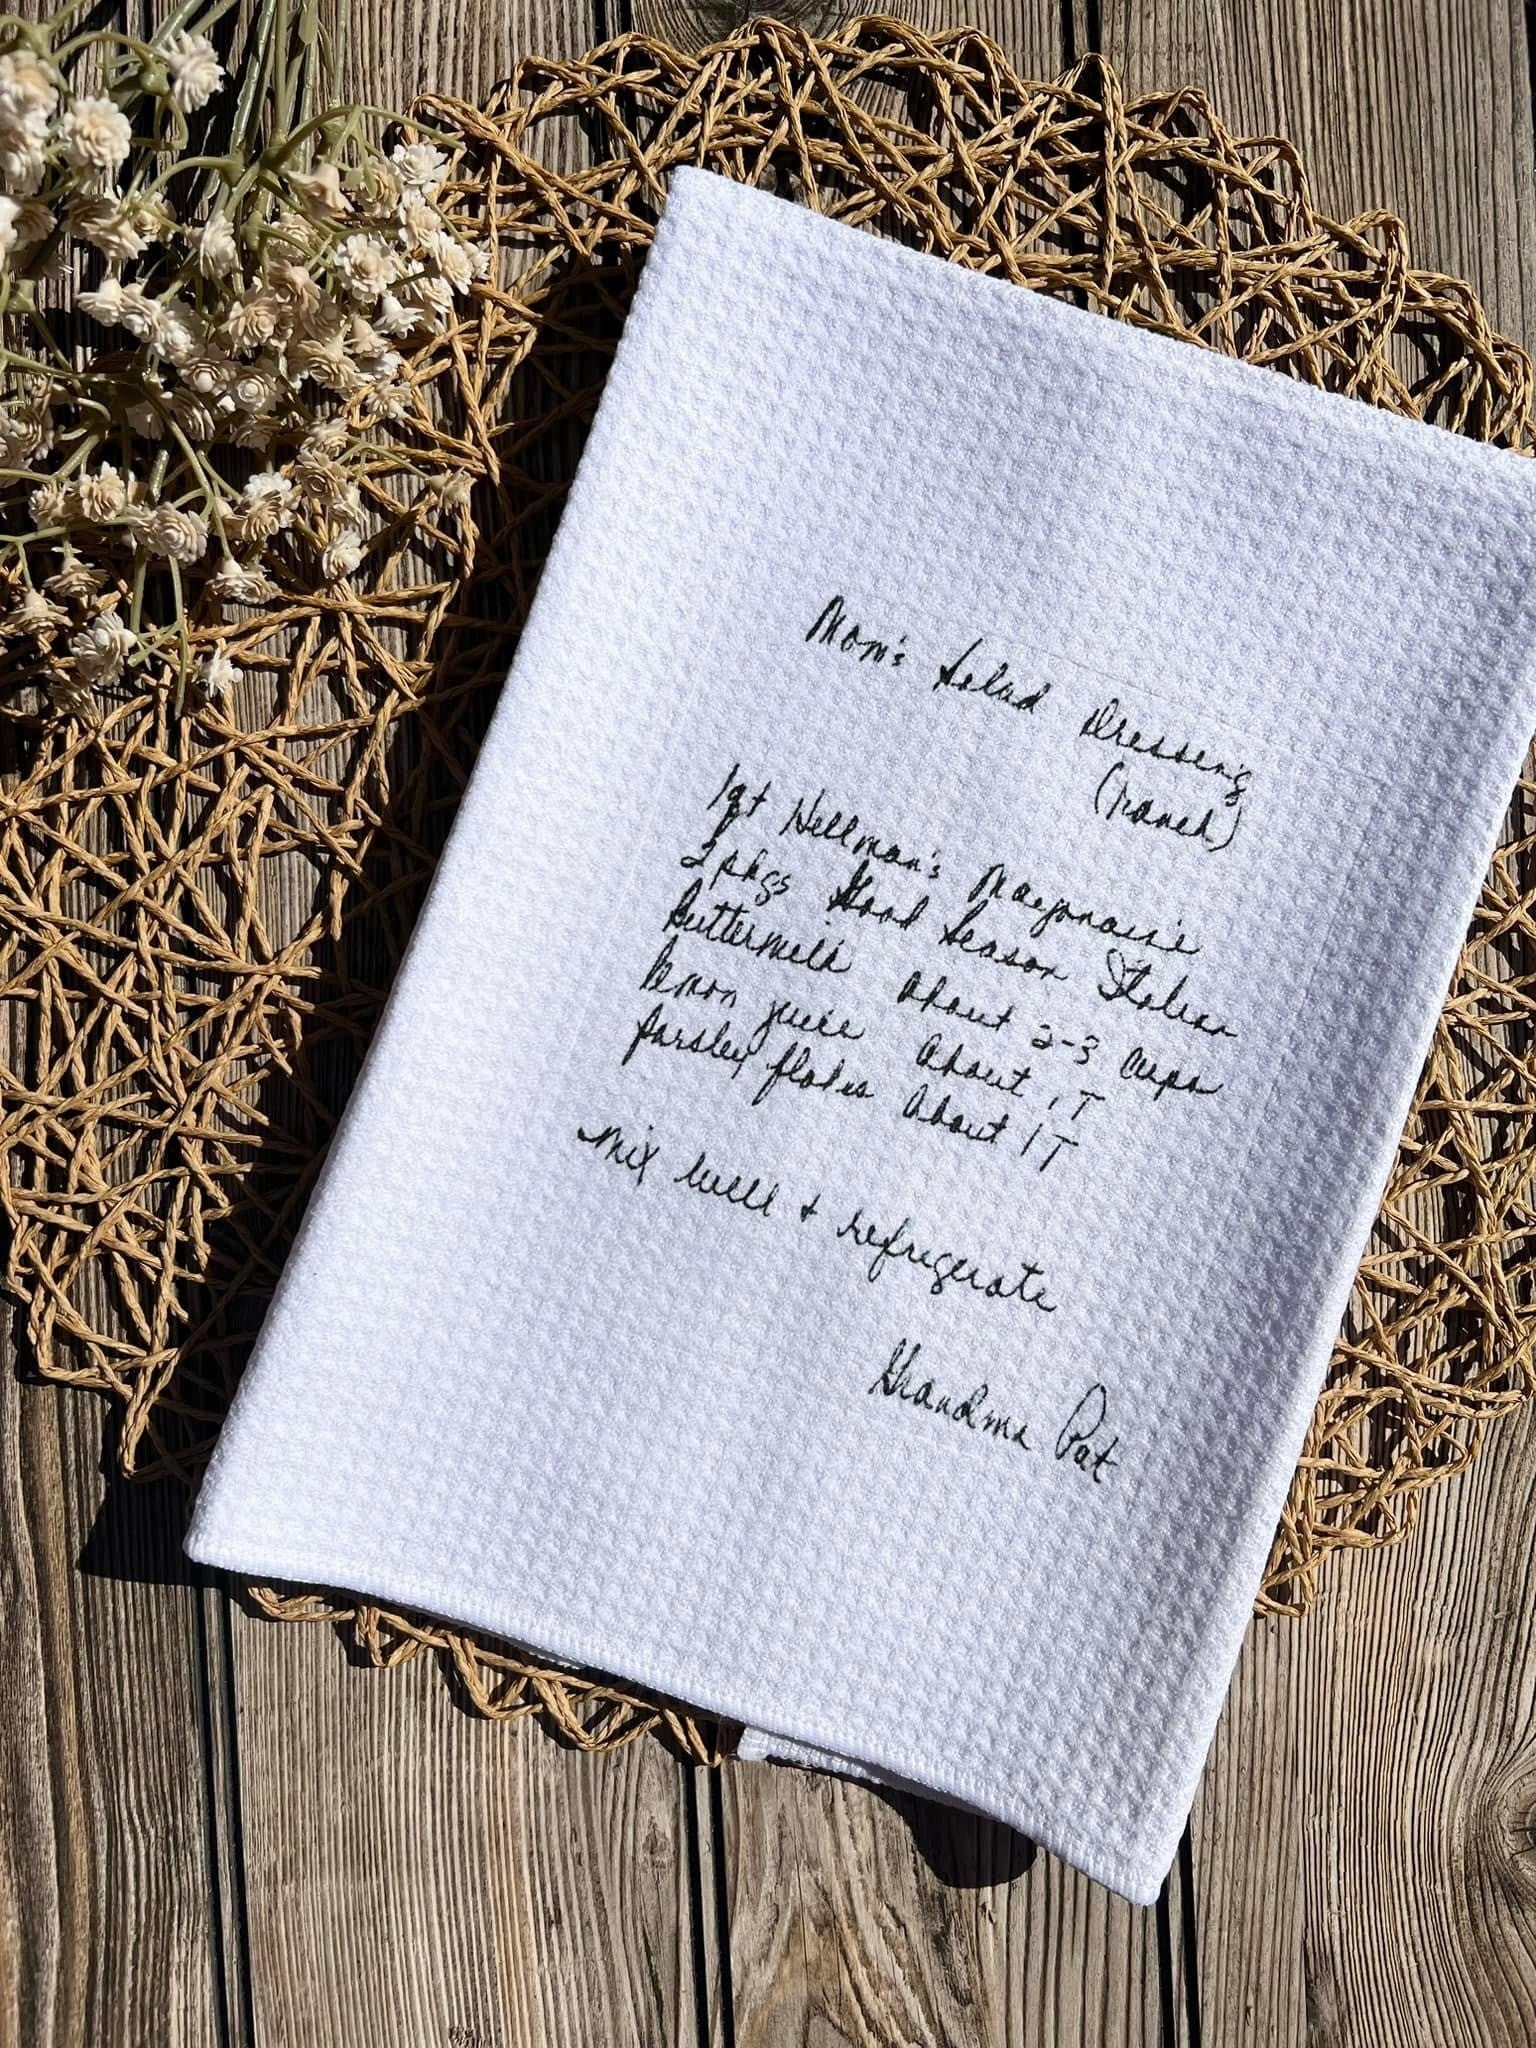 Mom's Salad Dressing
(ranch)
1 qt Hellman's Mayonaise
2 pkgs Good Season Italian
Buttermilk about 2-3 cups
lemon juice about 1 T
parsley flakes about 1 T
mix well + refrigerate
Grandma Pat